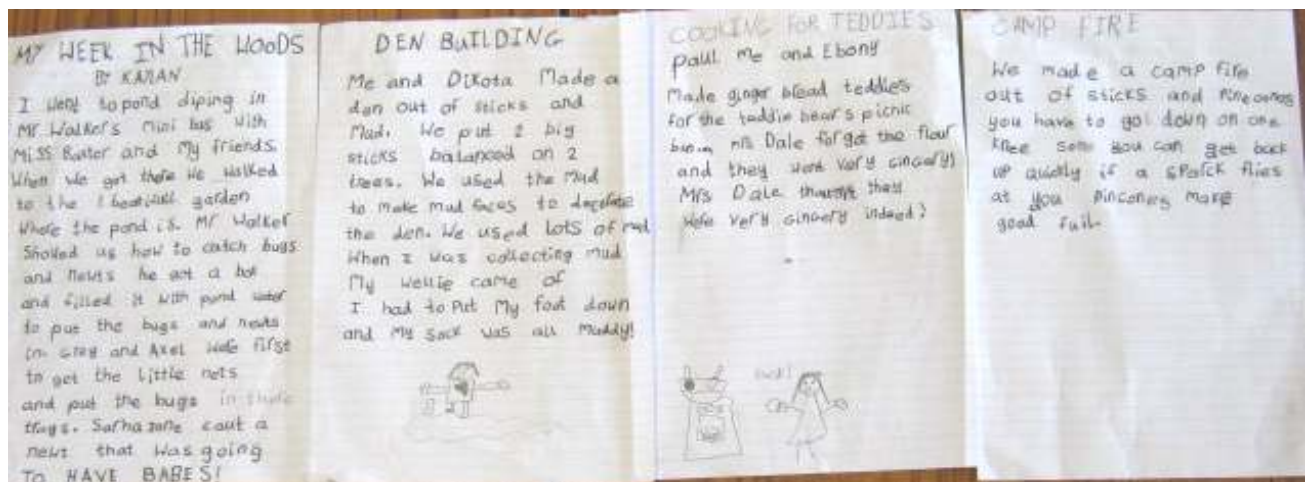 MY WEEK IN THE WOODS
BY KAJIAN
I went to pond diping in
Mr Walker's Mini bus with
Miss Ruter and My friends.
When we got there we walked
to the beatiull garden
Where the pond is. Mr Walker
Showed us how to catch bugs
and newts he got a box
and filled it with pond water
to put the bugs and newts
in. Greg and Axel were first
to get the little nets
and put the bugs in there
trays. Sarhajane caut a
newt that was going
TO HAVE BABES!
DEN BUILDING
Me and Dikota Made a
den out of sticks and
Mud. We put 2 big
sticks balanced on 2
trees. We used the Mud
to make mud faces to decorate
the den. We used Lots of mud
When I was collecting mud
My wellie came of
I had to Put My foot down
and My sock was all Muddy!
COOKING FOR TEDDIES
paul me and Ebony
Made ginger bread teddies
for the teddie bear's picnic
Mrs Dale forgot the flour
and they were very gingery!
Mrs Dale they
were very gingery indeed!
CAMP FIRE
We made a camp fire
out of sticks and Pinecones
you have to got down on one
knee so you can get back
up quickly if a sparck flies
at you Pinconens make
good fuil.